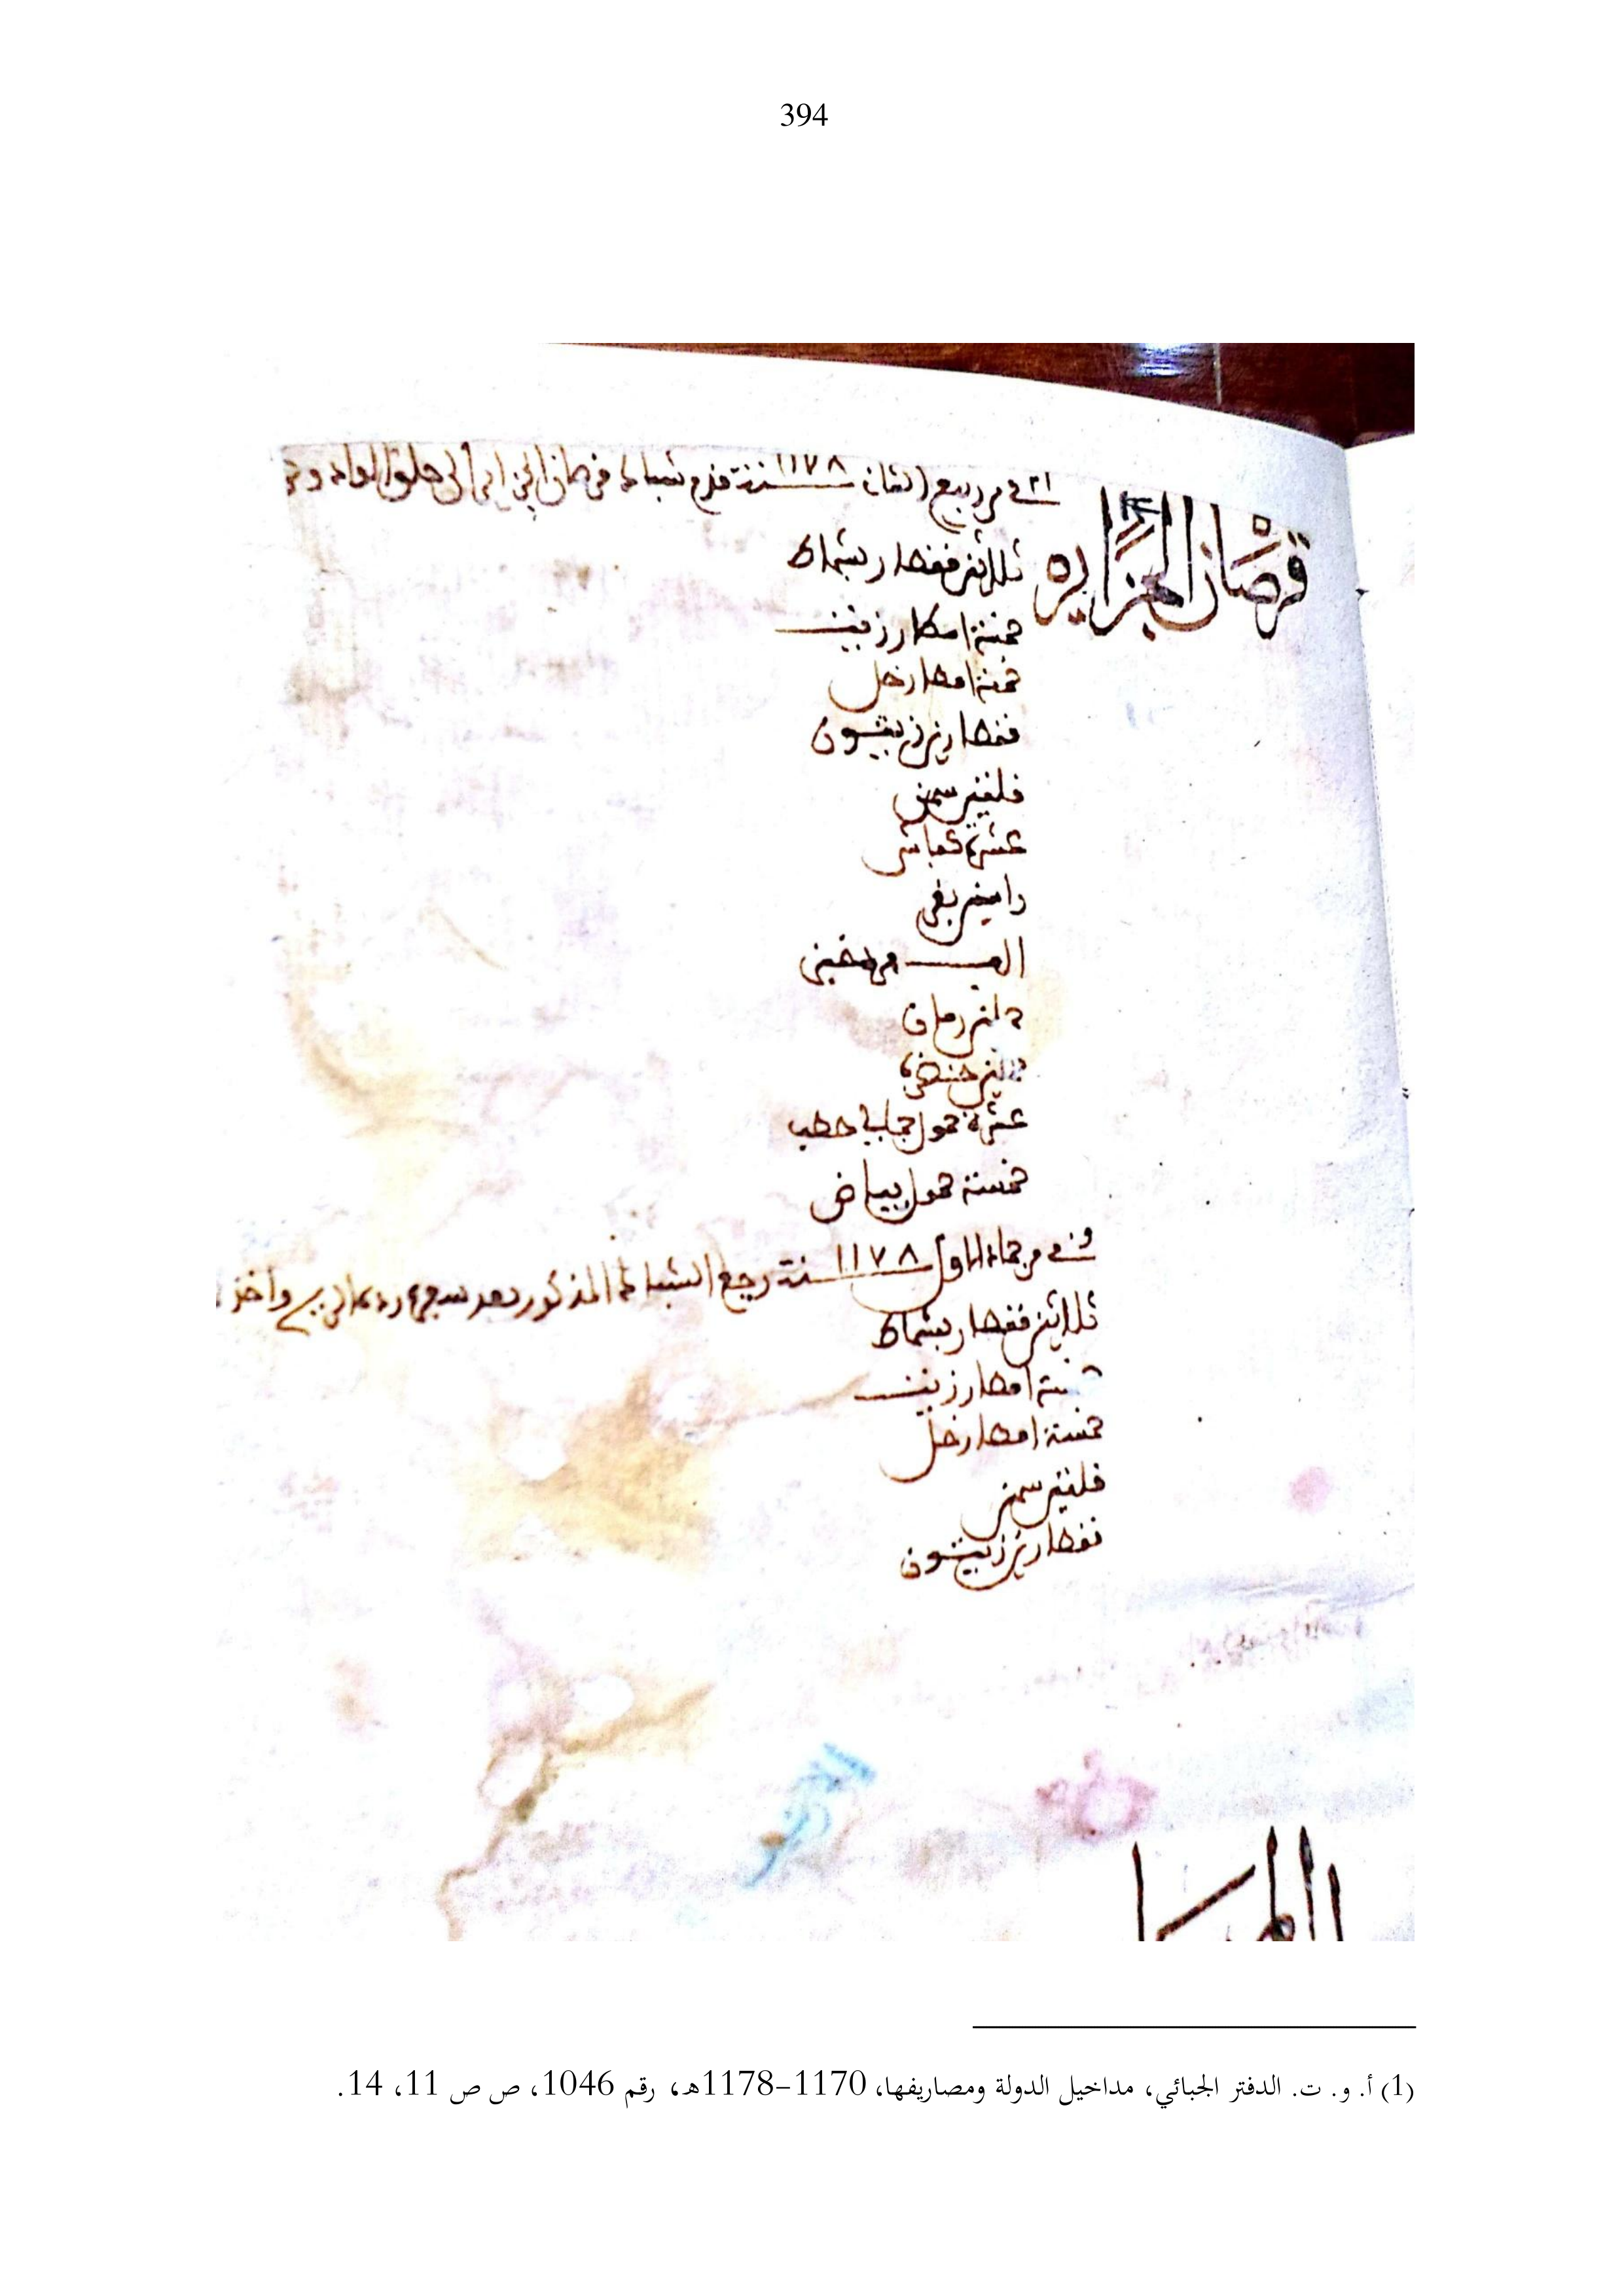 394
قرصان الجزاير
في من ربيع الثاني سنة ١١٧٨ قدم شباط قرصان الجزاير إلى حلق الواد
ثلاثين قنطار بشماط
خمسة امطار زيت
خمسة امطار خل
قنطارين زيتون
قلتين سمن
عشرة كباش
راسين بقر
الف
رمان
عشرة حمول جمالي حطب
خمسة حمول بياض
وفي من جماد الاول سنة ١١٧٨ رجع الشباط المذكور بعد سفره واخذ
ثلاثين قنطار بشماط
خمسة امطار زيت
خمسة امطار خل
قلتين سمن
قنطارين زيتون
(1) أ. و. ت. الدفتر الجبائي، مداخيل الدولة ومصاريفها، 1170-1178هـ، رقم 1046، ص ص 11، 14.